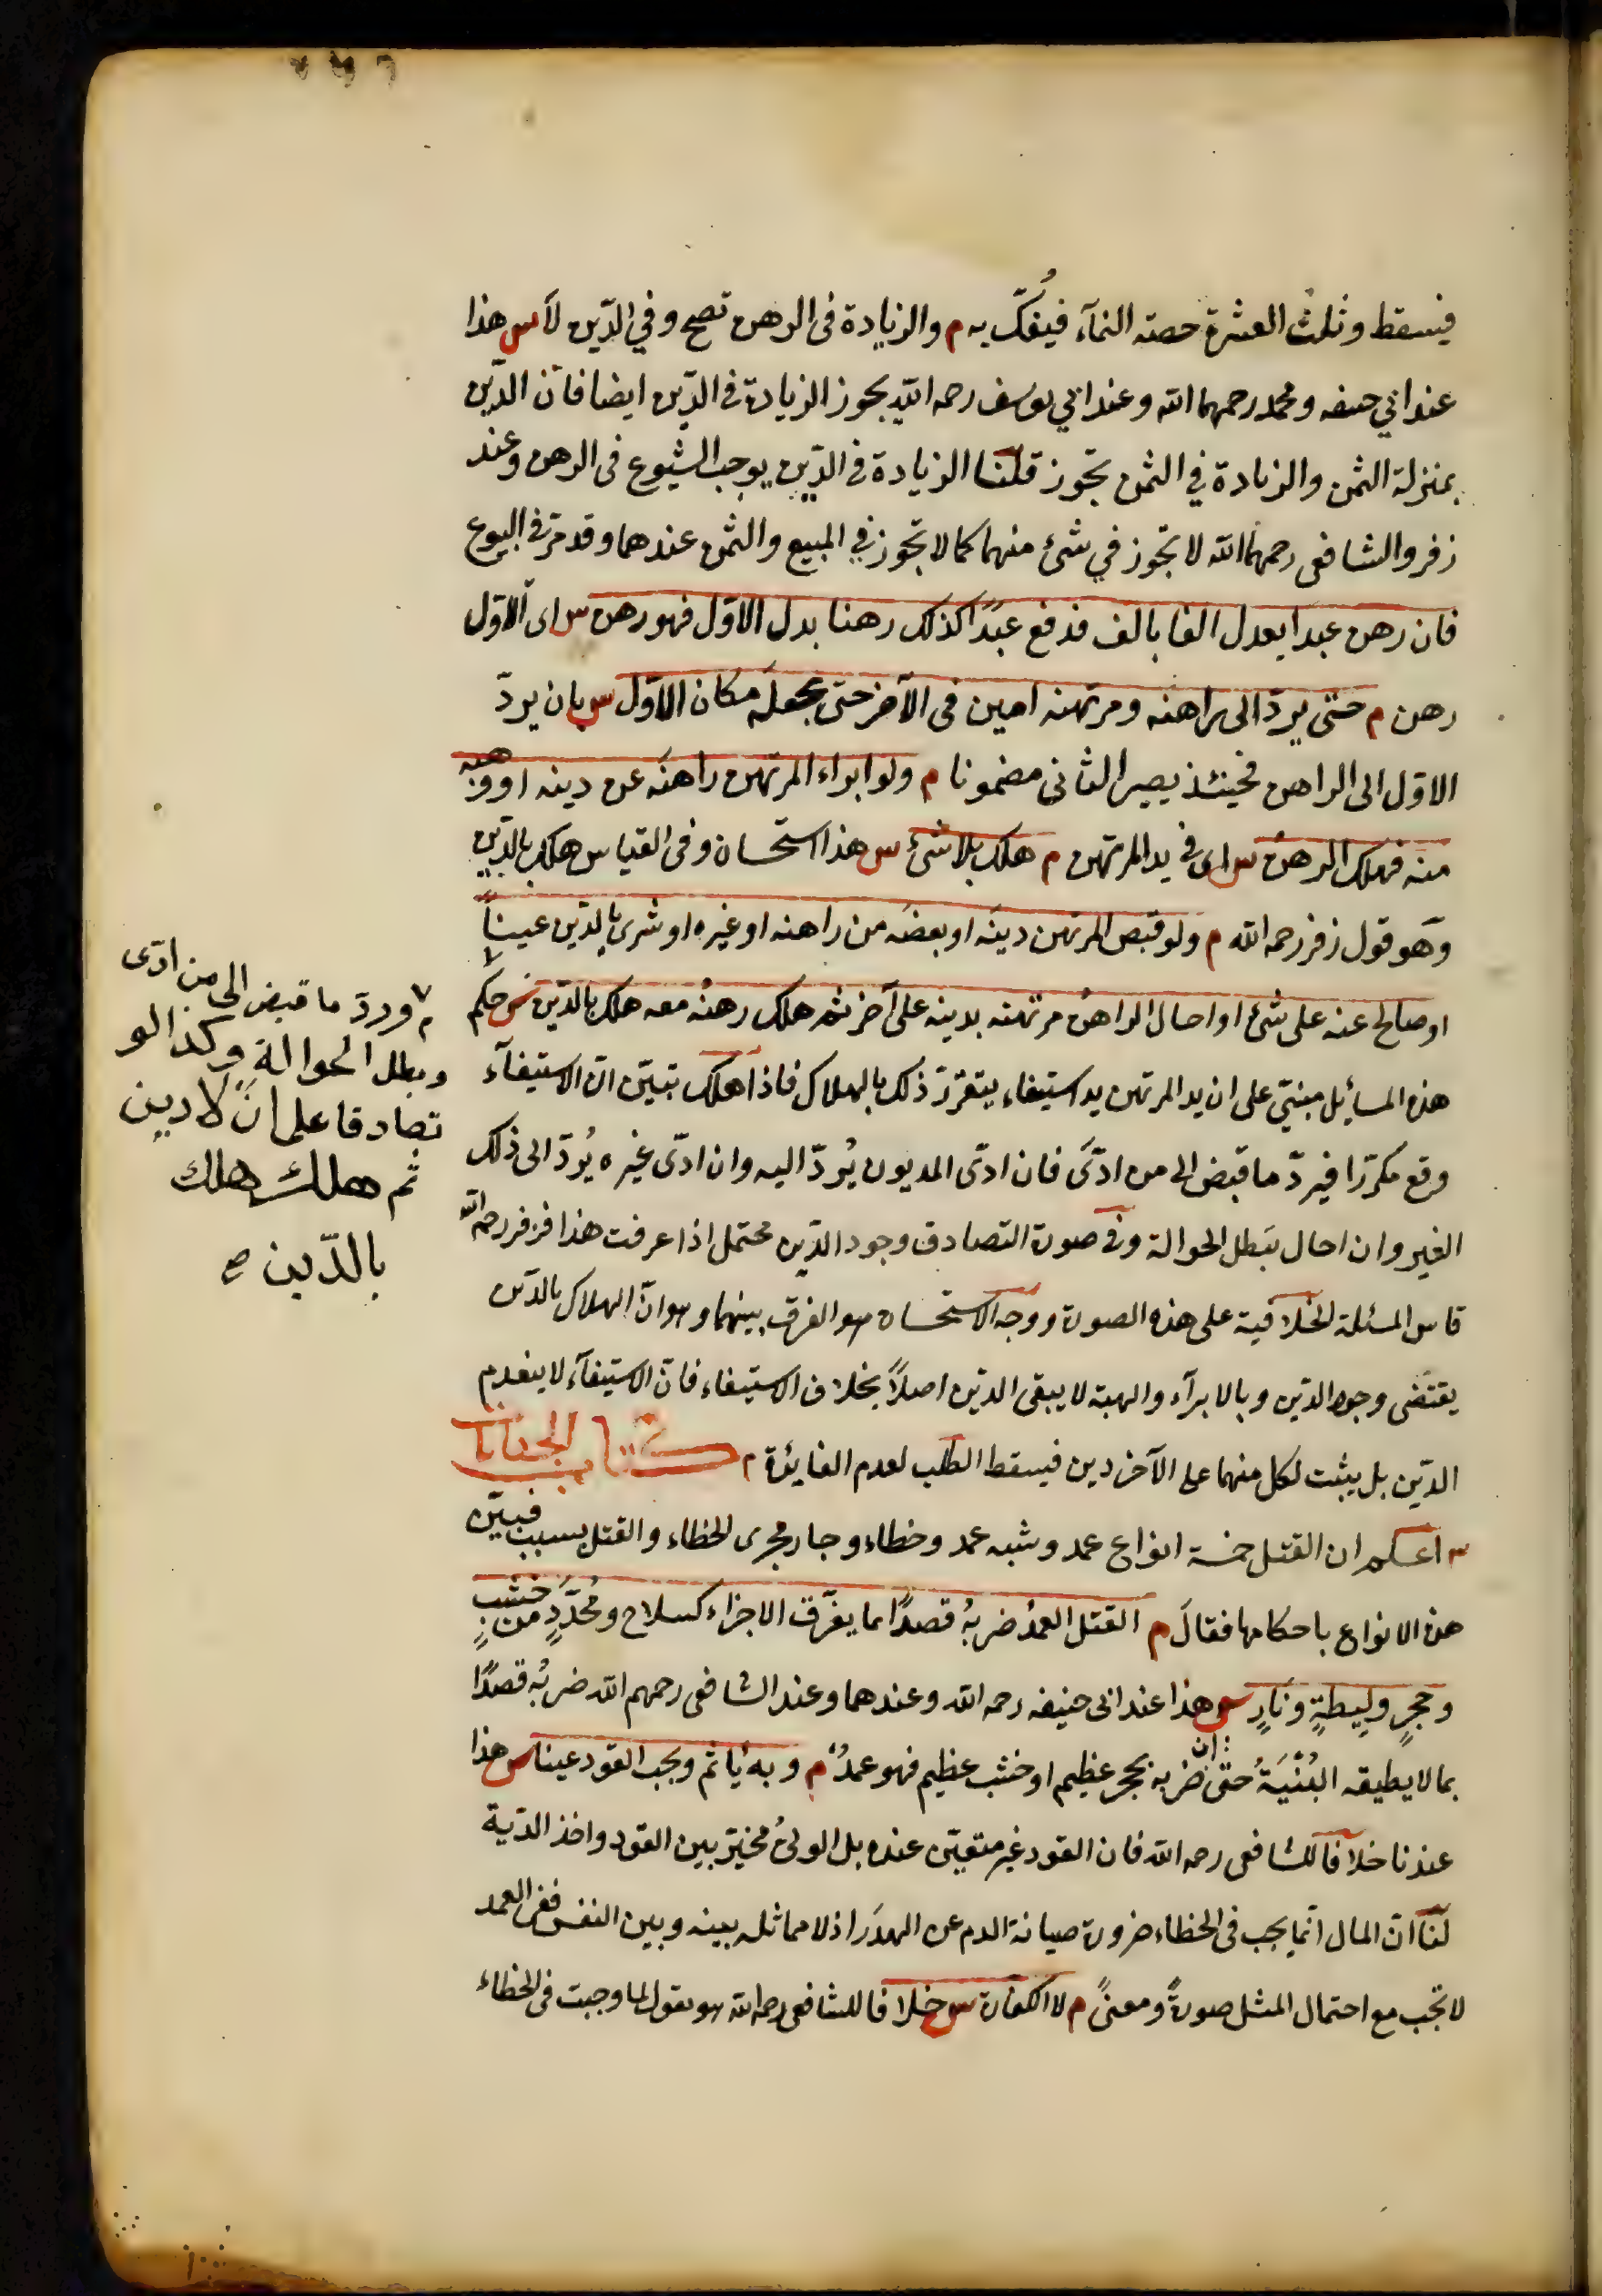 فيسقط وثلث العشرة حصته النمآء فيُفكّ به م والزيادة فى الرهن تصح وفي الدّين لا س هذا
عند ابي حنيفه ومحمد رحمهما الله وعند ابي يوسف رحمه الله يجوز الزيادة في الدّين ايضا فانّ الدّين
بمنزلة الثمن والزيادة في الثمن تجوز قلنا الزيادة في الدّين يوجب الشيوع فى الرهن وعند
زفر والشافعى رحمهما الله لا تجوز في شئ منهما كما لا تجوز في المبيع والثمن عندهما وقد مرّ في البيوع
فان رهن عبدا يعدل الفا بالف فدفع عبدًا كذلك رهنا بدل الاوّل فهو رهن س اى الاوّل
رهن م حتى يردّ الى راهنه ومرتهنه امين فى الآخر حتى يجعله مكان الاوّل س بان يردّ
الاوّل الى الراهن فحينئذ يصير الثانى مضمونا م ولو ابراء المرتهن راهنه عن دينه او وهبه
منه فهلك الرهن س اى في يد المرتهن م هلك بلا شئ س هذا استحسان وفى القياس هلك بالدّين
وهو قول زفر رحمه الله م ولو قبض المرتهن دينَه او بعضَه من راهنه او غيره او شرى بالدّين عيناً
او صالح عنه على شئ او احال الراهن مرتهنه بدينه على آخر ثم هلك رهنُه معه هلك بالدّين س حكم
هذه المسائيل مبنيّ على ان يد المرتهن يد استيفاء يتقرّر ذلك بالهلاك فاذا هلك تبيّن انّ الاستيفآء
وقع مكرّرا فيردّ ما قبض الى من ادّى فان ادّى المديون يُردّ اليه وان ادّى غيره يُردّ الى ذلك
الغير وان احال يَبطل الحوالة وفى صورة التصادق وجود الدّين محتمل اذا عرفت هذا فزفر رحمه الله
قاس المسئلة الخلافية على هذه الصورة ووجه الاستحسان هو الفرق بينهما وهو انّ الهلاك بالدّين
يقتضى وجود الدّين وبالابرآء والهبة لا يبقى الدّين اصلاً بخلاف الاستيفاء فانّ الاستيفآء لا ينعدم
الدّين بل يثبت لكل منهما على الآخر دين فيسقط الطلب لعدم الفايدة م كتاب الجنايات
س اعلم ان القتل خمسة انواع عمد وشبه عمد وخطاء وجار مجرى الخطاء والقتل بسبب فبيّن
هذه الانواع باحكامها فقالَ م القتل العمدُ ضربهُ قصدًا بما يفرّق الاجزاء كسلاح ومُحدّدٍ من خشبٍ
وحجرٍ وليطةٍ ونارٍ س هذا عند ابى حنيفه رحمه الله وعندهما وعند الشافعى رحمهم الله ضربُه قصدًا
بما لا يطيقه البُنْيَةُ حتى ان ضربه بحجر عظيم او خشب عظيم فهو عمدٌ م وبه يأثم ويجب القود عينا س هذا
عندنا خلافا للشافعى رحمه الله فان القود غير متعيّن عنده بل الولىُّ مخيّر بين القود واخذ الدّية
لنا انّ المال انّما يجب فى الخطاء ضرورة صيانة الدم عن الهدَر اذ لا مماثلة بينه وبين النفس ففى العمد
لا تجب مع احتمال المثل صورةً ومعنىً م لا الكفارة س خلافا للشافعى رحمه الله هو يقول لما وجبت فى الخطاء
م وردّ ما قبض الى من ادّى
وبطل الحوالة وكذا لو
تصادقا على انّ لا دين
ثم هلك هلك
بالدّين صح